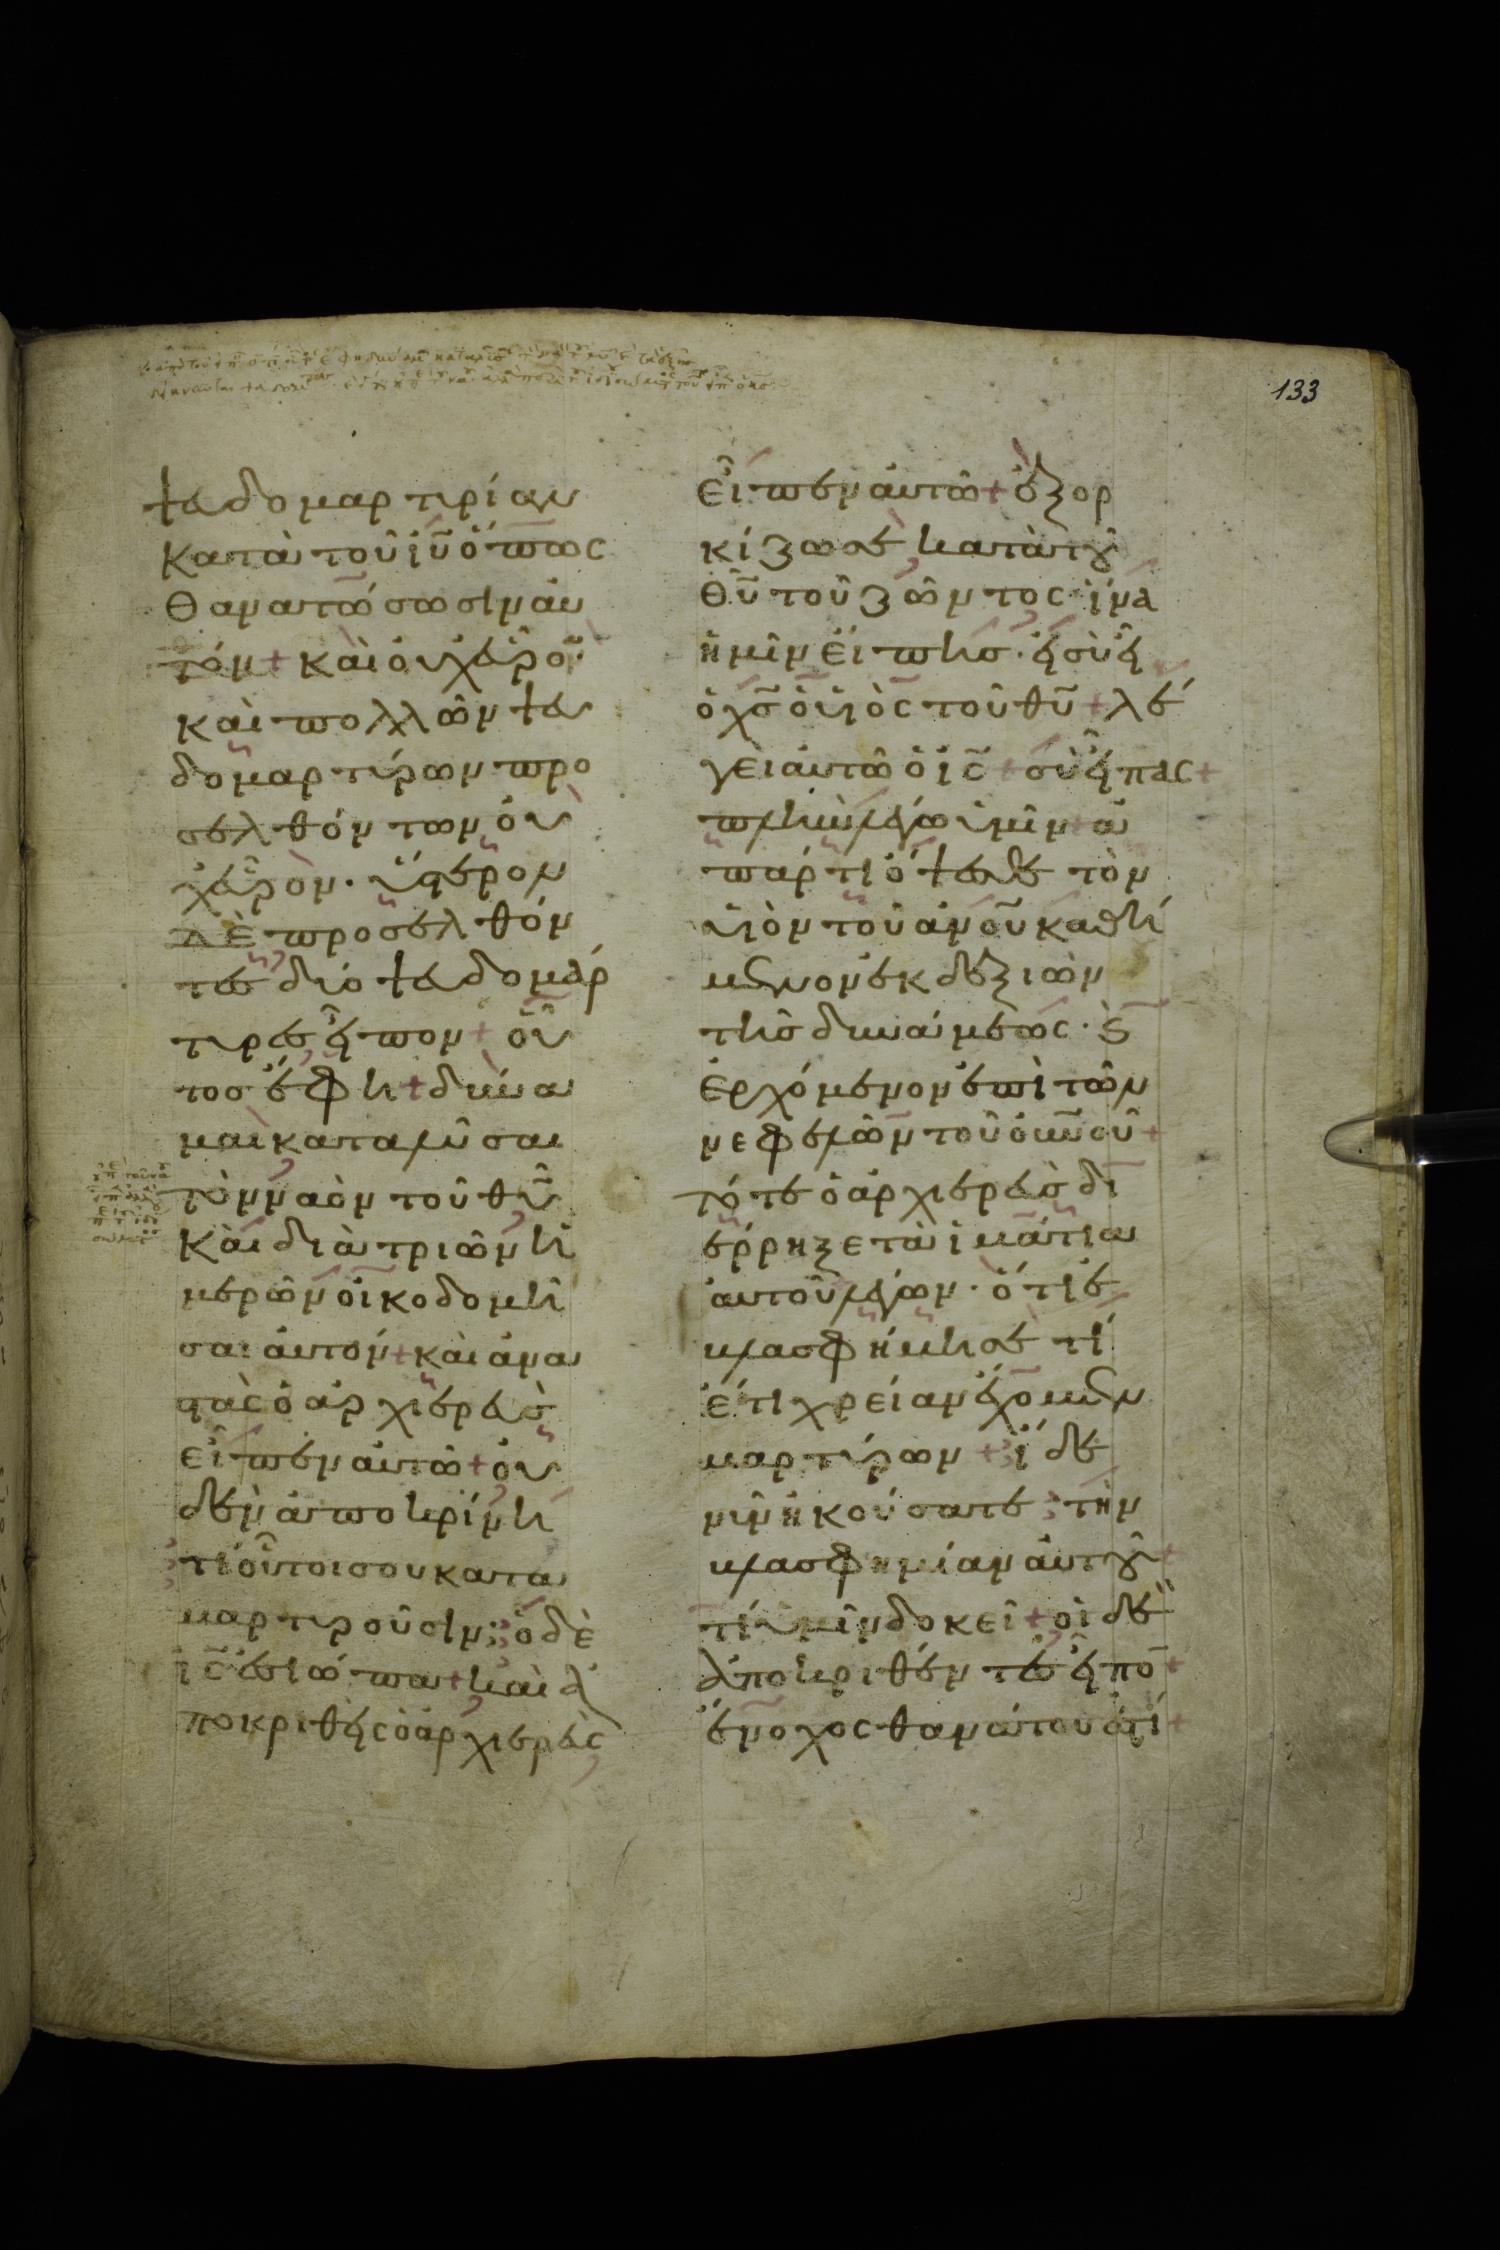 133
ψευδομαρτυρίαν
κατὰ τοῦ ἰῦ ὅπως
θανατώσωσιν αὐ
τόν + καὶ οὐχεῦρον·
καὶ πολλῶν ψευ
δομαρτύρων προ
σελθόντων οὐ
χεῦρὸν. ὕστερον
δὲ προσελθόν
τες δύο ψευδομάρ
τυρες εἶπον + οὗ
τος ἔφη + δύνα
μαι καταλῦσαι
τὸν ναὸν τοῦ θῦ
καὶ διὰ τριῶν ἡ
μερῶν οἰκοδομῆ
σαι αὐτόν + καὶ ἀνα
στὰς ὁ ἀρχιερεὺς
εἶπεν αὐτῶ + οὐ
δὲν ἀποκρίνη
τί οὗτοι σου κατα
μαρτυροῦσιν; ὁ δὲ
ἰς ἐσιώπα + καὶ ἀ
ποκριθεὶς ὁ ἀρχιερεὺς
εἶπεν αὐτῶ + ἐξορ
κίζω σε κατὰ τοῦ
θῦ τοῦ ζῶντος· ἵνα
ἡμῖν εἴπης· εἰ σὺ εἶ
ὁ χς ὁ υἱὸς τοῦ θῦ + λέ
γει αὐτῶ ὁ ἰς + σὺ εἶπας +
πλὴν λέγω ὑμῖν + ἀ
πάρτι ὄψεσθε τὸν
υἱὸν τοῦ ἀνοῦ καθή
μενον ἐκ δεξιῶν
τῆς δυνάμεως· ϗ
ἐρχόμενον ἐπὶ τῶν
νεφελῶν τοῦ οὐνοῦ +
τότε ὁ ἀρχιερεὺς δι
έρρηξε τὰ ἱμάτια
αὐτοῦ λέγων· ὅτι ἐ
βλασφήμησε τί
ἔτι χρείαν ἔχομεν
μαρτύρων + ἴδε
νῦν ἠκούσατε τὴν
βλασφημίαν αὐτοῦ +
τί ὑμῖν δοκεῖ + οἱ δὲ
ἀποκριθέντες εἶπον +
ἔνοχος θανάτου ἐστί +